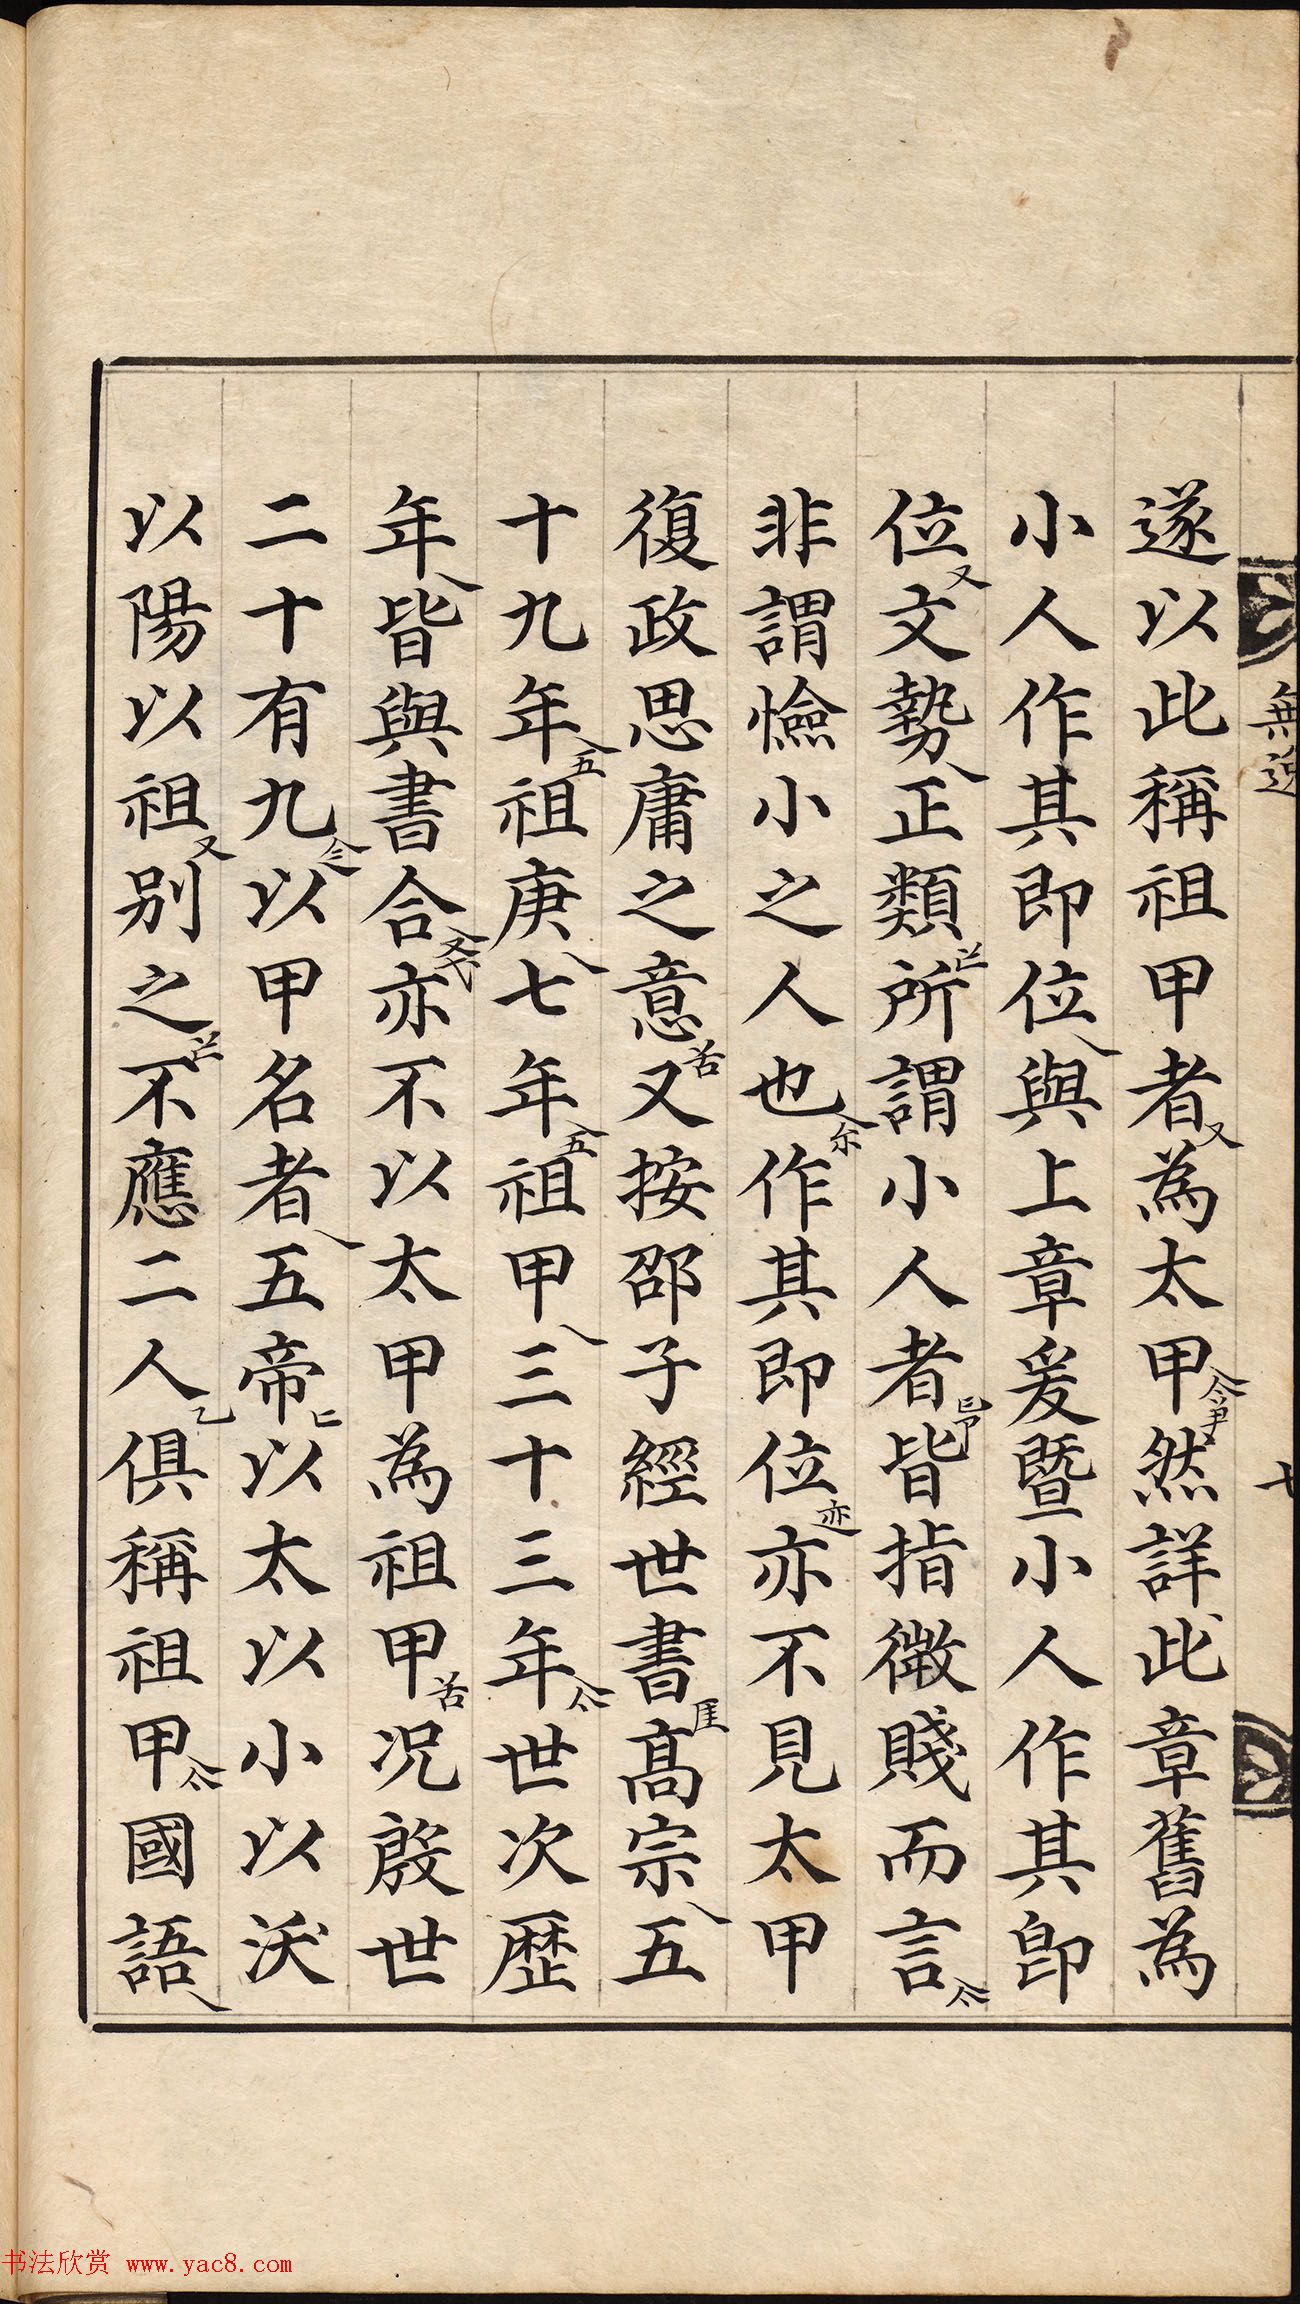 遂以此稱祖甲者又為太甲然詳此章舊為
小人作其即位丶與上章爰暨小人作其即
位又文勢丶正類所謂小人者皆指微賤而言
非謂憸小之人也作其即位亦不見太甲
復政思庸之意又按邵子經世書高宗丶五
十九年五祖庚丶七年五祖甲丶三十三年世次歷
年丶皆與書合亦不以太甲為祖甲况殷世
二十有九以甲名者丶五帝以太以小以沃
以陽以祖又別之不應二人乙俱稱祖甲國語丶
無逸
十
书法欣赏 www.yac8.com